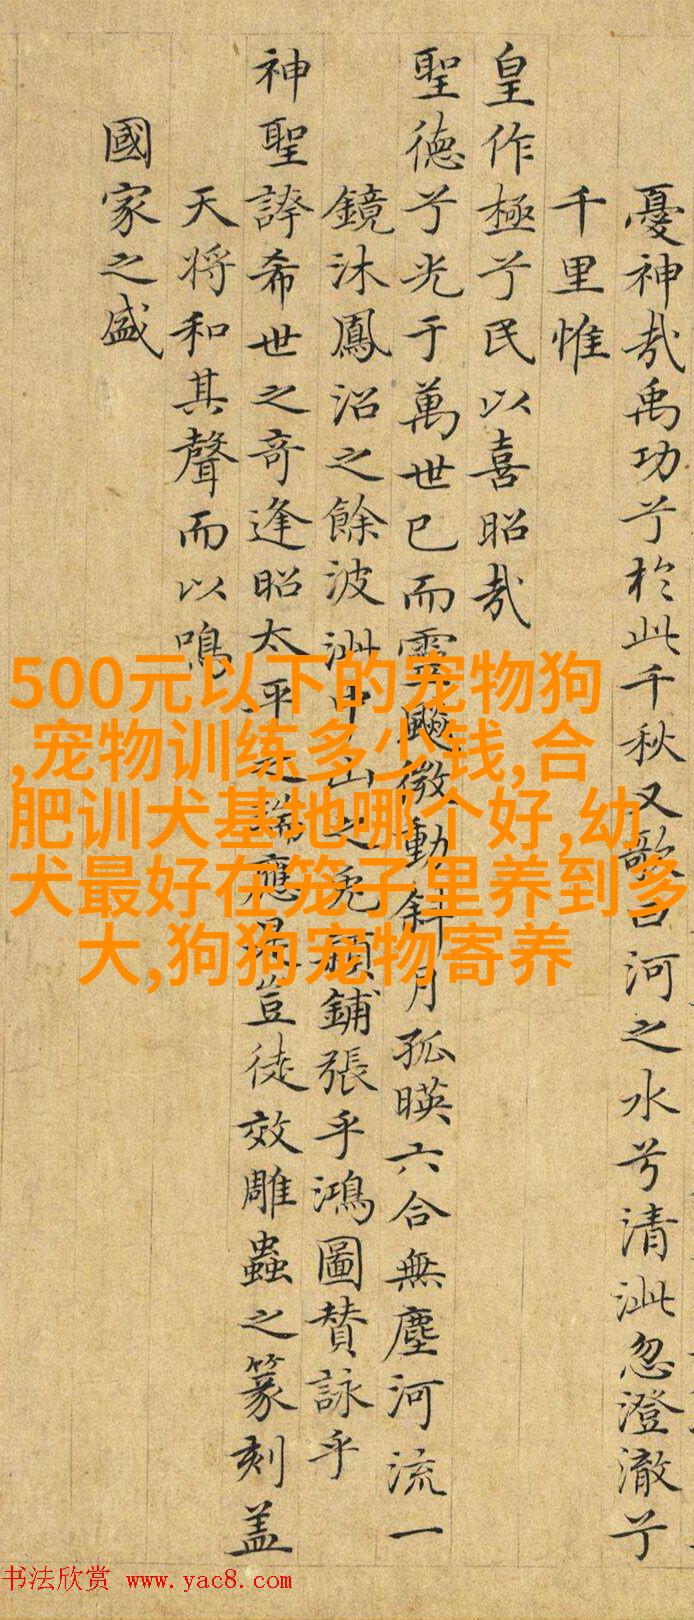 憂神哉禹功兮於此千秋又歌曰河之水兮清泚忽澄澈兮
千里惟
皇作極兮民以喜昭哉
聖德兮光于萬世已而雲飈微動斜月孤暎六合無塵河流一
鏡沐鳳沼之餘波泚中山之兎穎鋪張乎鴻圖賛詠乎
神聖誇希世之奇逢昭太平之瑞應豈徒效雕蟲之篆刻盖
天将和其聲而以鳴
國家之盛
500元以下的宠物狗
,宠物训练多少钱,合
肥训犬基地哪个好,幼
犬最好在笼子里养到多
大,狗狗宠物寄养
书法欣赏 www.yac8.com